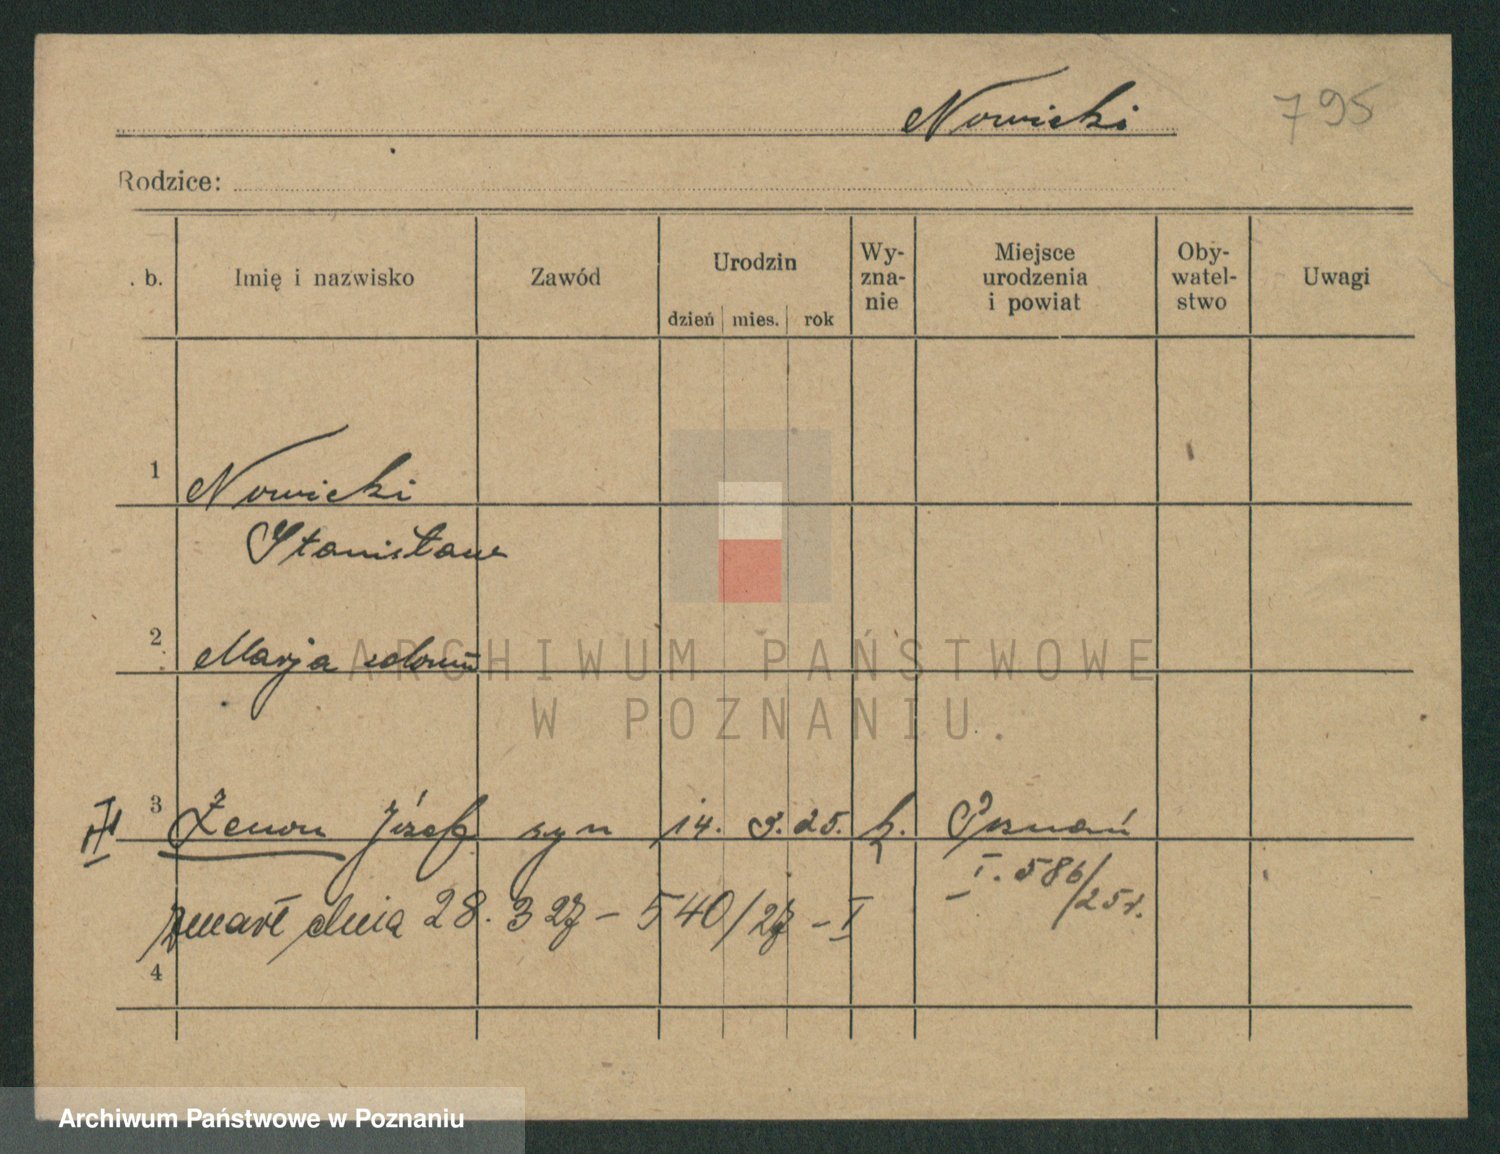 Nowicki 795
Rodzice:
. b. Imię i nazwisko Zawód Urodzin dzień mies. rok Wy-zna-nie Miejsce urodzenia i powiat Oby-watel-stwo Uwagi
1 Nowicki
Stanisław
2 Marja
ARCHIWUM PAŃSTWOWE
W POZNANIU.
3 Zenon Józef syn 14. 3. 25. k. Poznań
I. 586/25 r.
zmarł dnia 28. 3 27 – 540/27 – I
4
Archiwum Państwowe w Poznaniu